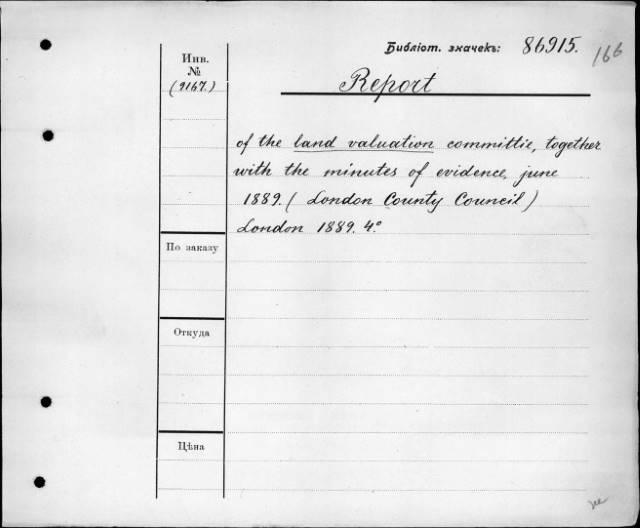 Библіот. значекъ: 86915. 166
Инв.
№
(9167.)
Report
of the land valuation committie, together
with the minutes of evidence, june
1889. (London County Council)
London 1889. 4º
По заказу
Откуда
Цѣна